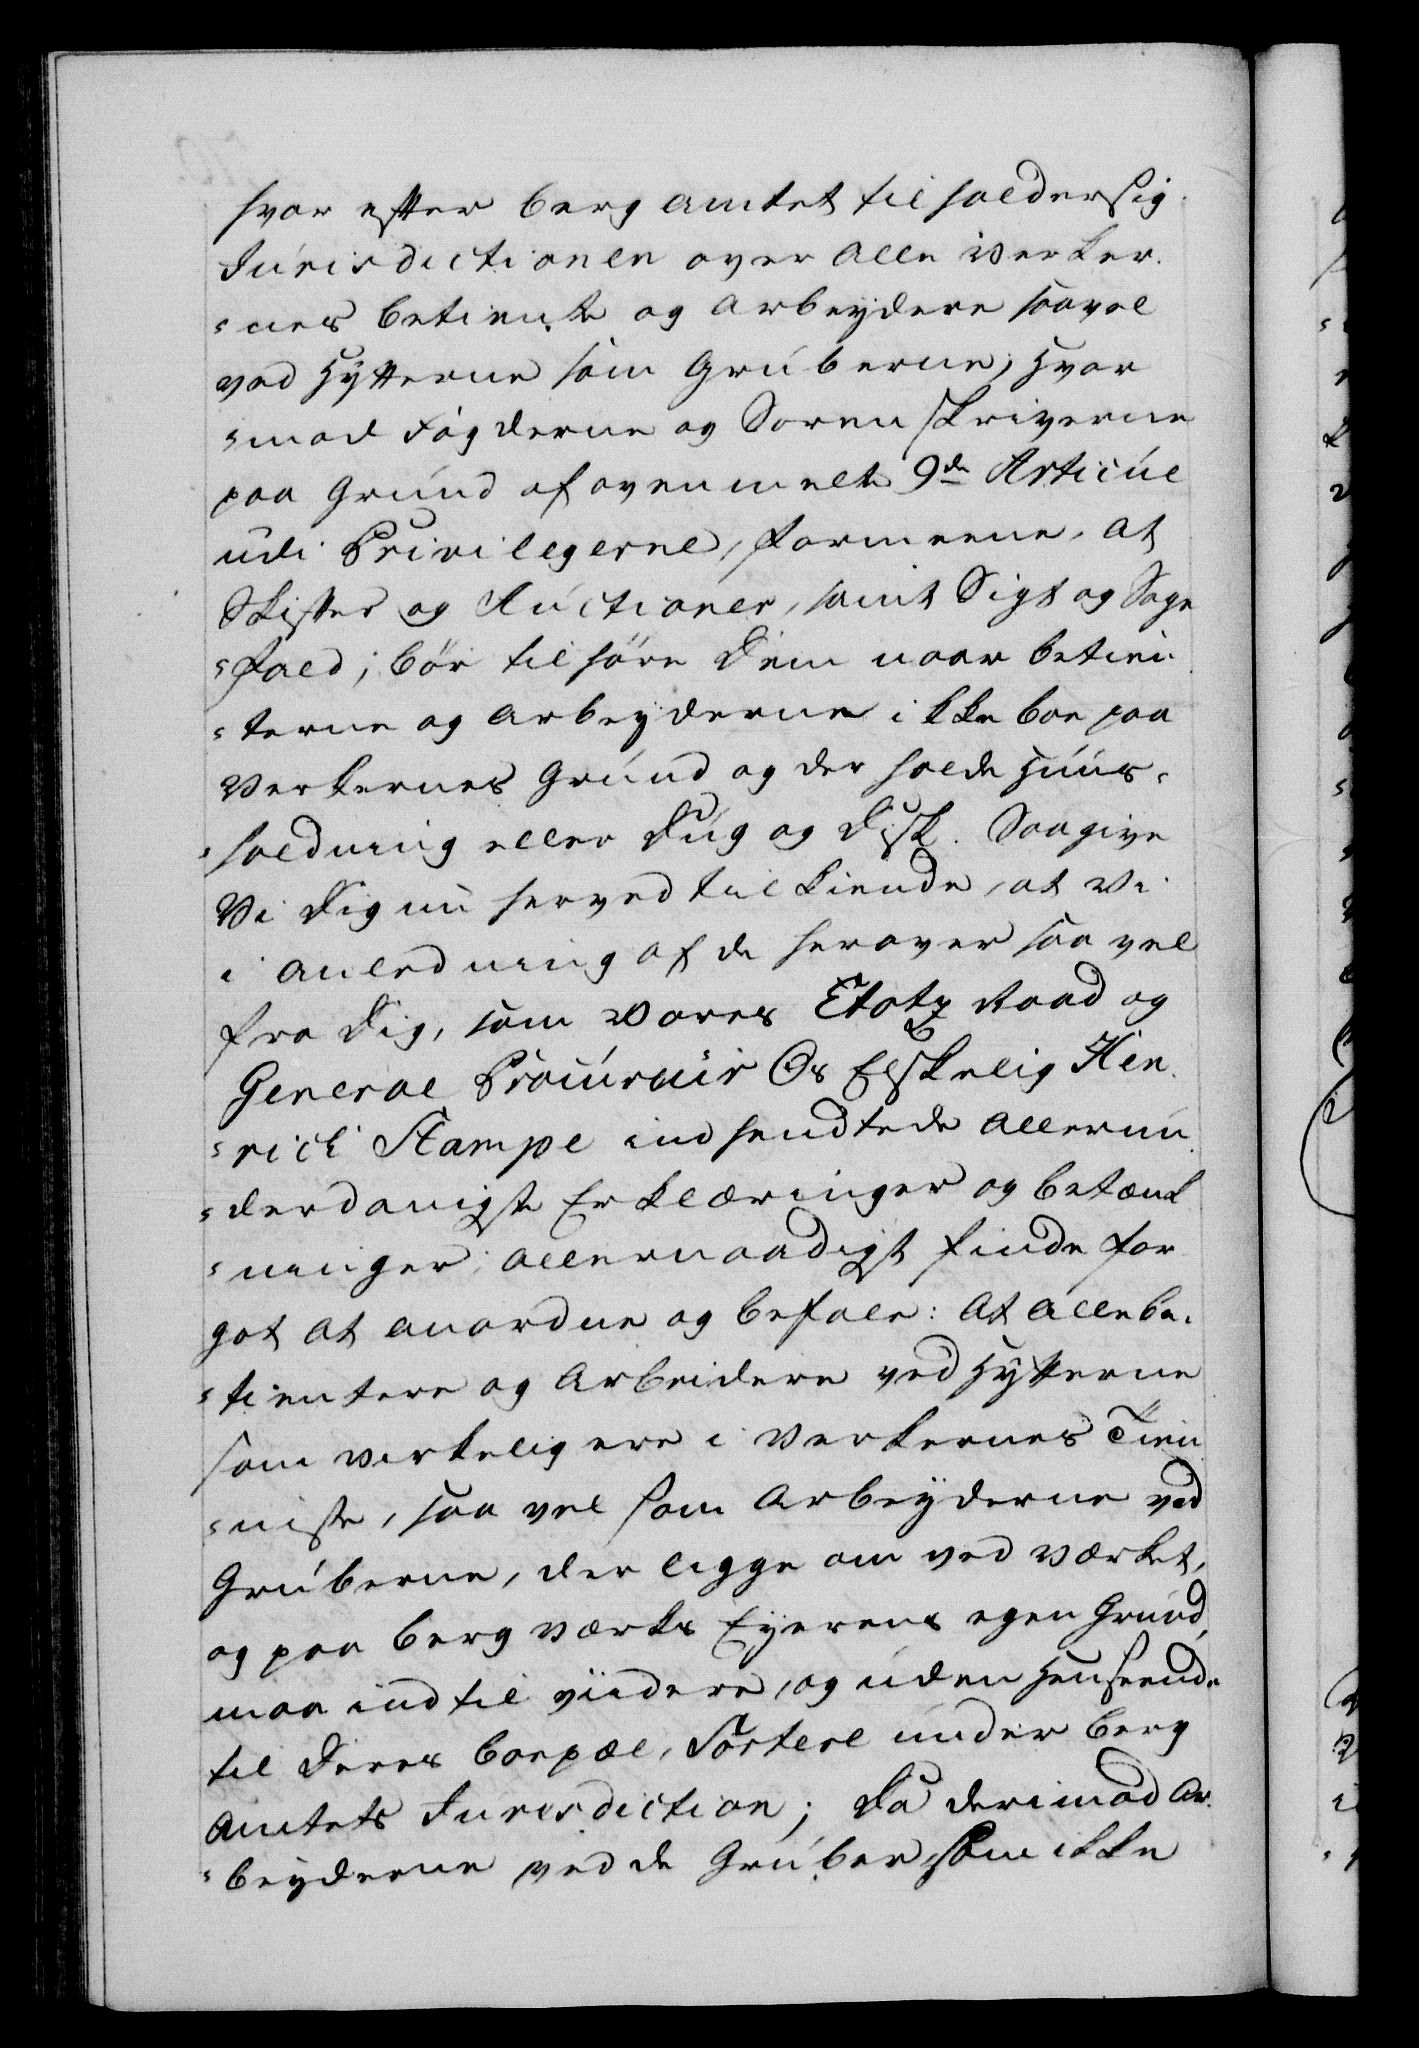 hvor efter berg amtet tilholder sig
Jurisdictionen over alle Verker¬
¬nes betiente og Arbeydere saavel
ved Hytterne som Gruberne, Hvor
¬mod Fogderne og Sorenskriverne
paa Grund af ovenmelte 9de Articul
udi Privilegerne, formeene, at
Skifter og Auctioner, samt Sigt og Sage
¬fald, bör tilhöre Dem naar betien
¬terne og Arbeyderne ikke boe paa
Verkernes Grund og der holde Huus¬
¬holdning eller Dug og Disk. Saa give
Vi Dig nu herved tilkiende, at Vi
i anledning af de herover saa vel
fra Dig, som Vores Etatz Raad og
General Procureur Os Elskelig Hen¬
¬rich Stampe indsendtede Allerun
¬derdanigste Erklæringer og betænk
¬ninger, allernaadigst finde for
got at anordne og befale: At alle be¬
¬tientere og Arbeidere ved Hytterne
som virkelig ere i Verkernes Tien
¬niste, saa vel som Arbeyderne ved
Gruberne, der ligge om ved Værket,
og paa berg værks Eyerens egen Grund,
maa indtil viidere, og uden Henseende
til Deres boepæl, Sortere under berg
Amtets Jurisdiction; Da derimod Ar¬
¬beyderne ved de Gruber, som ikke